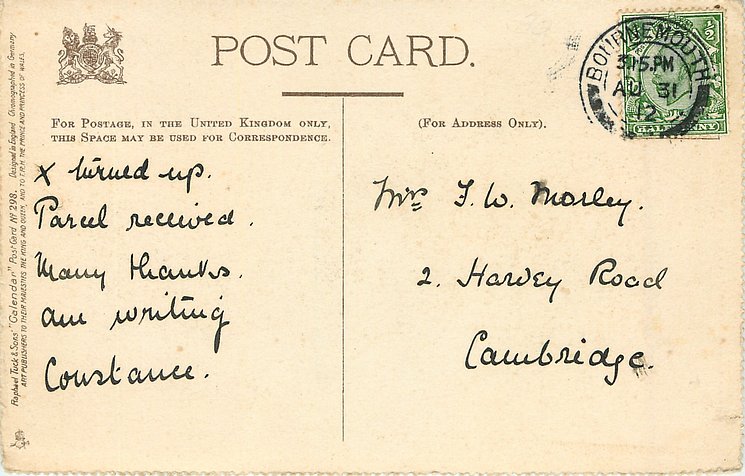 POST CARD.
FOR POSTAGE, IN THE UNITED KINGDOM ONLY,
THIS SPACE MAY BE USED FOR CORRESPONDENCE.
(FOR ADDRESS ONLY).
BOURNEMOUTH
3.15.PM
AU 31
12
HALFPENNY
½
X turned up.
Parcel received.
Many thanks.
am writing
Constance.
Mrs F. W. Morley.
2. Harvey Road
Cambridge.
Raphael Tuck & Sons' "Calendar" Post Card Nº 298. Designed in England. Chromographed in Germany
ART PUBLISHERS TO THEIR MAJESTIES THE KING AND QUEEN, AND TO T.R.H. THE PRINCE AND PRINCESS OF WALES.